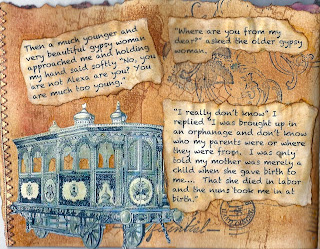 Then a much younger and
very beautiful gypsy woman
approached me and holding
my hand said softly "No, you
are not Alexa are you? You
are much too young."
"Where are you from my
dear?" asked the older gypsy
woman.
"I really don't know", I
replied "I was brought up in
an orphanage and don't know
who my parents were or where
they were from. I was only
told my mother was merely a
child when she gave birth to
me.... That she died in labor
and the nuns took me in at
birth."